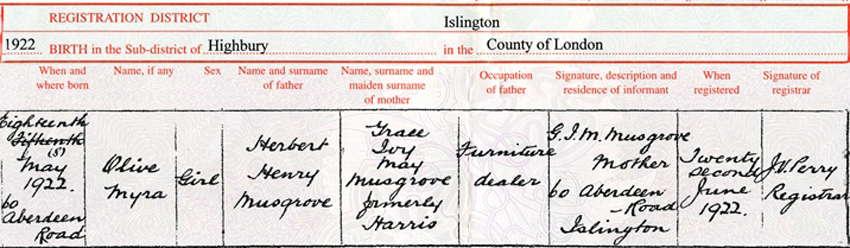 REGISTRATION DISTRICT Islington
1922 BIRTH in the Sub-district of Highbury in the County of London
When and where born
Name, if any
Sex
Name and surname of father
Name, surname and maiden surname of mother
Occupation of father
Signature, description and residence of informant
When registered
Signature of registrar
Eighteenth
Fifteenth
(S)
May
1922.
60
Aberdeen
Road
Olive
Myra
Girl
Herbert
Henry
Musgrove
Grace
Ivy
May
Musgrove
formerly
Harris
Furniture
dealer
G.I.M. Musgrove
Mother
60 Aberdeen
Road
Islington
Twenty
second
June
1922.
J.V. Perry
Registrar